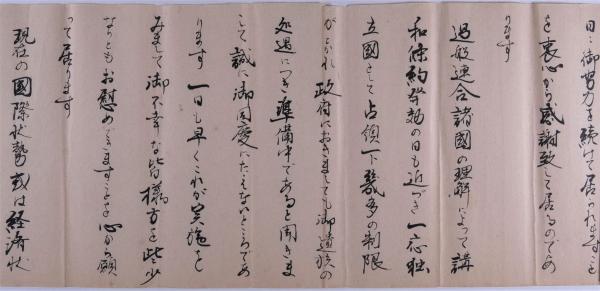 日に御努力を続けて居られますことを
衷心から感謝致して居るのであ
ります
過般連合諸國の理解によって講
和條約発効の日も近づき一応独
立國として占領下幾多の制限
がとかれ政府におきましても御遺族の
処遇につき準備中であると聞きま
して誠に御同慶にたえないところであ
ります 一日も早くこれが実施を
みまして御不幸な皆様方を些少
なりともお慰めできますことを心から願
って居ります
現在の國際状勢或は経済状